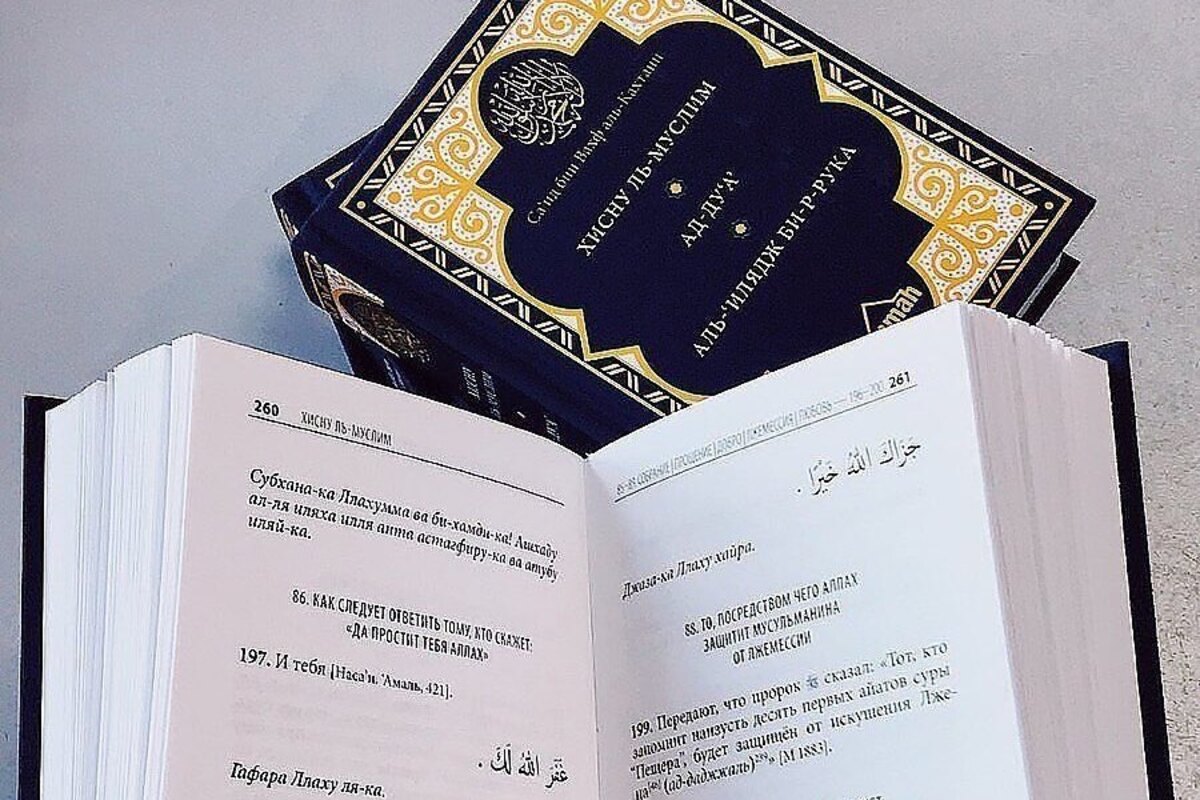 Са‘ид бин Вахф аль-Кахтани
ХИСНУ ЛЬ-МУСЛИМ
АД-ДУ‘А’
АЛЬ-‘ИЛЯДЖ БИ-Р-РУКА
mmah
260 ХИСНУ ЛЬ-МУСЛИМ
Субхана-ка Ллахумма ва би-хамди-ка! Ашхаду
ал-ля иляха илля анта астагфиру-ка ва атубу
иляй-ка.
86. КАК СЛЕДУЕТ ОТВЕТИТЬ ТОМУ, КТО СКАЖЕТ:
«ДА ПРОСТИТ ТЕБЯ АЛЛАХ»
197. И тебя [Наса’и. ‘Амаль, 421].
غَفَرَ اللهُ لَكَ .
Гафара Ллаху ля-ка.
85–88. СОБРАНИЕ | ПРОЩЕНИЕ | ДОБРО | ЛЖЕМЕССИЯ | ЛЮБОВЬ — 196–200 261
جَزَاكَ اللهُ خَيْرًا .
Джаза-ка Ллаху хайра.
88. ТО, ПОСРЕДСТВОМ ЧЕГО АЛЛАХ
ЗАЩИТИТ МУСУЛЬМАНИНА
ОТ ЛЖЕМЕССИИ
199. Передают, что пророк ﷺ сказал: «Тот, кто
запомнит наизусть десять первых айатов суры
“Пещера”, будет защищён от искушения Лже-
(ад-даджаль)» [М 1883].